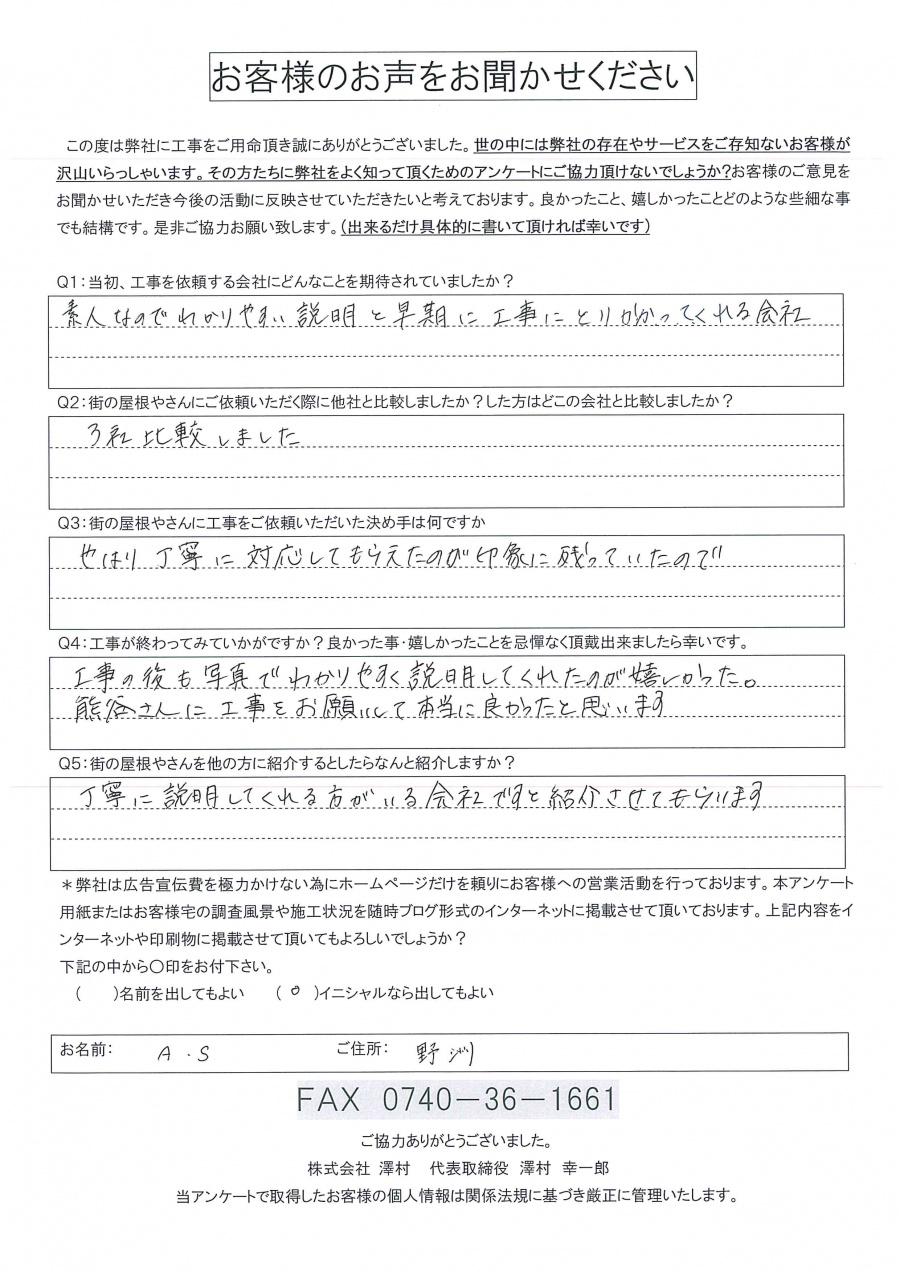 お客様のお声をお聞かせください
この度は弊社に工事をご用命頂き誠にありがとうございました。世の中には弊社の存在やサービスをご存知ないお客様が
沢山いらっしゃいます。その方たちに弊社をよく知って頂くためのアンケートにご協力頂けないでしょうか?お客様のご意見を
お聞かせいただき今後の活動に反映させていただきたいと考えております。良かったこと、嬉しかったことどのような些細な事
でも結構です。是非ご協力お願い致します。(出来るだけ具体的に書いて頂ければ幸いです)
Q1:当初、工事を依頼する会社にどんなことを期待されていましたか?
素人なのでわかりやすい説明と早期に工事にとりかかってくれる会社
Q2:街の屋根やさんにご依頼いただく際に他社と比較しましたか?した方はどこの会社と比較しましたか?
3社比較しました
Q3:街の屋根やさんに工事をご依頼いただいた決め手は何ですか
やはり丁寧に対応してもらえたのが印象に残っていたので
Q4:工事が終わってみていかがですか?良かった事・嬉しかったことを忌憚なく頂戴出来ましたら幸いです。
工事の後も写真でわかりやすく説明してくれたのが嬉しかった。
熊谷さんに工事をお願いして本当に良かったと思います
Q5:街の屋根やさんを他の方に紹介するとしたらなんと紹介しますか?
丁寧に説明してくれる方がいる会社ですと紹介させてもらいます
*弊社は広告宣伝費を極力かけない為にホームページだけを頼りにお客様への営業活動を行っております。本アンケート
用紙またはお客様宅の調査風景や施工状況を随時ブログ形式のインターネットに掲載させて頂いております。上記内容をイ
ンターネットや印刷物に掲載させて頂いてもよろしいでしょうか?
下記の中から〇印をお付下さい。
( )名前を出してもよい (○)イニシャルなら出してもよい
お名前: A.S ご住所: 野洲
FAX 0740-36-1661
ご協力ありがとうございました。
株式会社 澤村 代表取締役 澤村 幸一郎
当アンケートで取得したお客様の個人情報は関係法規に基づき厳正に管理いたします。